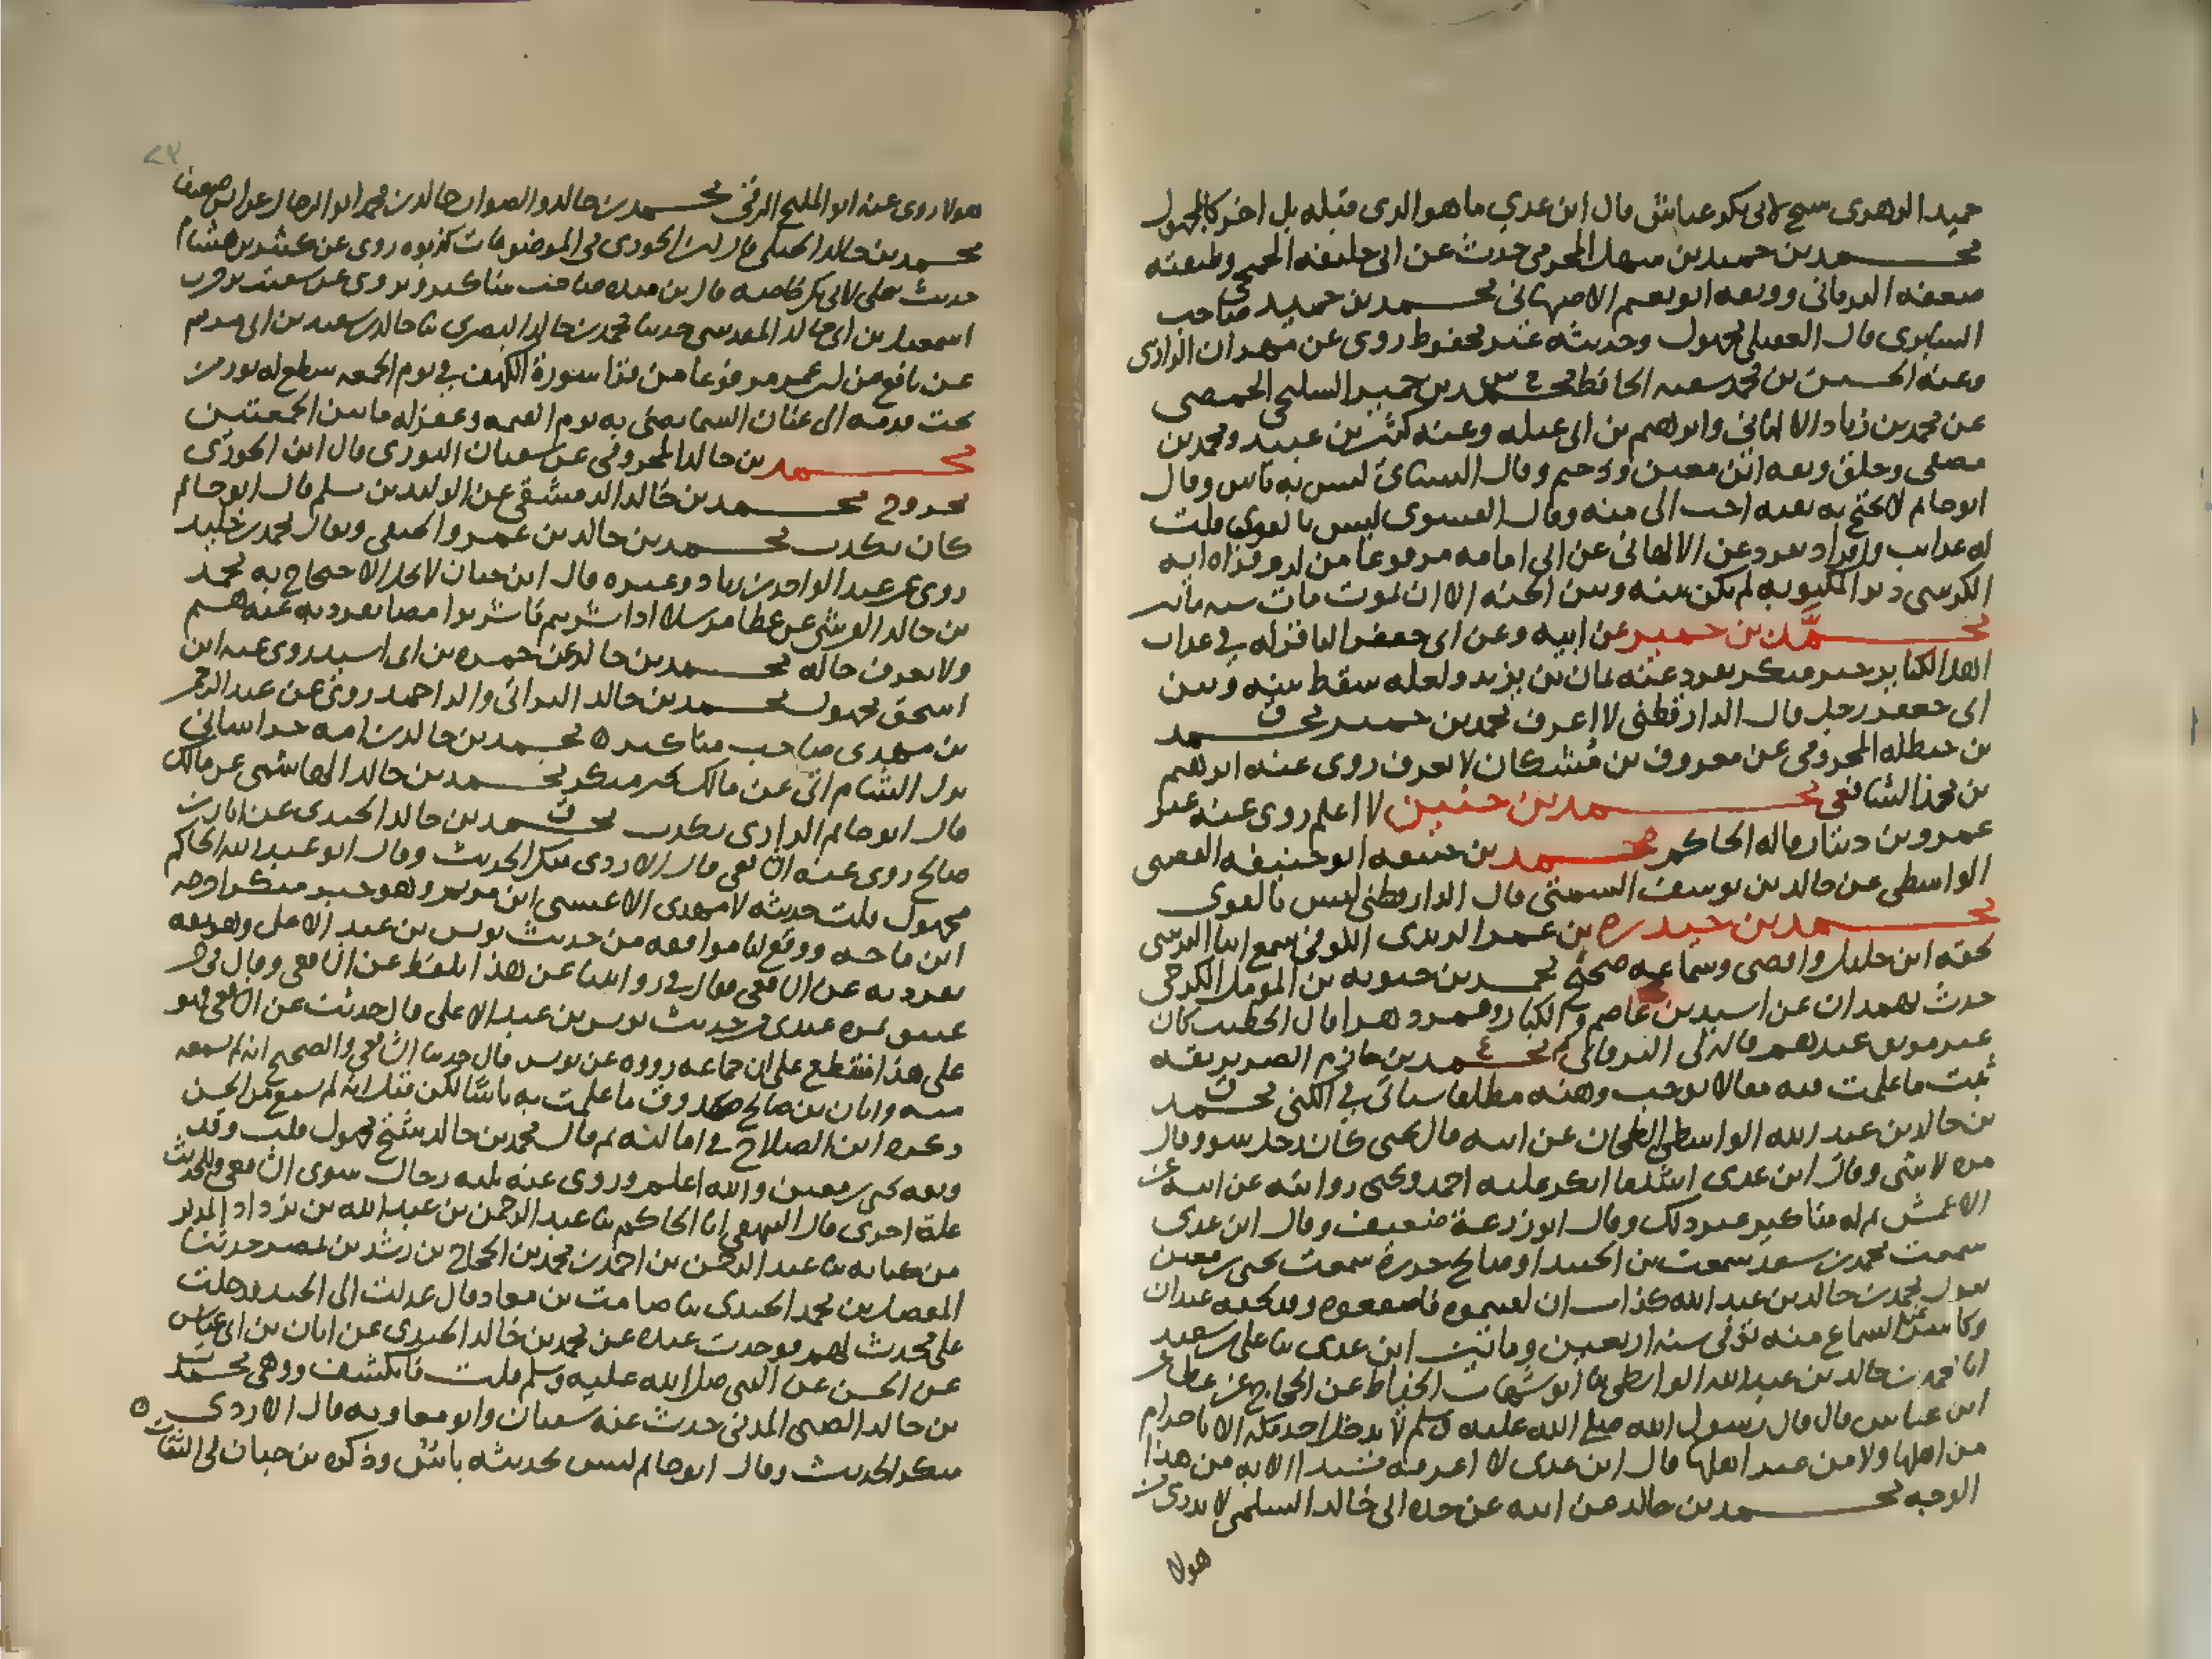 حميد الزهري شيخ لابي بكر عياش قال ابن عدي ما هو الذي قبله بل اخر كالمجهول
محمد بن حميد بن سهيل المخرمي حدث عن ابي خليفه الجمحي وطبقته
ضعفه البرقاني ووثقه ابو نعيم الاصبهاني محمد بن حميد صاحب
السابري قال العقيلي مجهول وحديثه غير محفوظ روى عن مهران الرازي
وعنه الحسين بن محمد سعيد الحافظ محمد بن حمير السليحي الحمصي
عن محمد بن زياد الالهاني وابراهيم بن ابي عبله وعنه كثير بن عبيد ومحمد بن
مصفى وخلق وثقه ابن معين ودحيم وقال النسائي ليس به باس وقال
ابو حاتم لا يحتج به بقيه احب الي منه وقال الفسوي ليس بالقوي قلت
له غرايب وافراد تفرد عن الالهاني عن ابي امامه مرفوعا من قراه ايه
الكرسي دبر المكتوبه لم يكن بينه وبين الجنه الا ان يموت مات سنه مائتين
محمد بن حمير عن ابيه وعن ابي جعفر الباقر له في عذاب
اهل الكباير خبر منكر تفرد عنه يمان بن يزيد ولعله سقط بينه وبين
ابي جعفر رجل قال الدارقطني لا اعرف محمد بن حمير ق محمد
بن حنظله المخزومي عن معروف بن مشكان لا يعرف روى عنه ابراهيم
بن محمد الشافعي محمد بن حنين لا اعلم روى عنه غير
عمرو بن دينار قاله الحاكم محمد بن حنيفه ابو حنيفه القصبي
الواسطي عن خالد بن يوسف السمتي قال الدارقطني ليس بالقوي
محمد بن حيدره بن عمر الزيدي الكوفي سمع ابيا النرسي
لحقه ابن خليل وافضى وسماعه صحيح محمد بن حيويه بن المومل الكرجي
حدث بهمدان عن اسيد بن عاصم والكبار وعمر دهرا قال الخطيب كان
غير موثق عندهم قاله لي البرقاني ع محمد بن خازم الضرير ثقه
ثبت ما علمت فيه مقالا يوجب وهنه مطلقا سياتي في الكنى ق محمد
بن خالد بن عبد الله الواسطي الطحان عن ابيه قال يحيى كان رجل سوء وقال
مره لا شي وقال ابن عدي اشد ما انكر عليه احمد ويحيى روايته عن ابيه عن
الاعمش ثم له مناكير غير ذلك وقال ابو زرعة ضعيف وقال ابن عدي
سمعت محمد بن سعد سمعت بن الجنيد او صالح جزرة سمعت يحيى بن معين
يقول محمد بن خالد بن عبد الله كذاب ان لقيتموه فاصفعوه وقد لحقه عبدان
السماع منه توفي سنه اربعين ومائتين ابن عدي ثنا علي بن سعيد
انا محمد بن خالد بن عبد الله الواسطي ثنا ابو شهاب الحناط عن الحجاج عن عطا عن
ابن عباس قال قال رسول الله صلى الله عليه وسلم لا يدخل احد مكة الا باحرام
من اهلها ولا من غير اهلها قال ابن عدي لا اعرفه مسندا الا به من هذا
الوجه محمد بن خالد عن ابيه عن جده ابي خالد السلمي لا يدرى من
هولا
هولا روى عنه ابو المليح الرقي محمد بن خالد والصواب خالد بن محمد ابو الرحال عن انس ضعيف
محمد بن خالد الحنبلي قال ابن الجوزي في الموضوعات كذبوه روى عن كثير بن هشام
حديث تجلى لابي بكر خاصه قال بن منده صاحب مناكير ويروى عن شعيب بن حرب
اسمعيل بن ابي خالد المقدسي حدثنا محمد بن خالد البصري ثنا خالد بن سعيد بن ابي مريم
عن نافع عن ابن عمر مرفوعا من قرا سورة الكهف في يوم الجمعه سطع له نور من
تحت قدمه الى عنان السما يضي به يوم القيمه وغفر له ما بين الجمعتين
محمد بن خالد المخزومي عن سفيان الثوري قال ابن الجوزي
مجروح محمد بن خالد الدمشقي عن الوليد بن مسلم قال ابو حاتم
كان يكذب محمد بن خالد بن عمرو الحنفي ويقال محمد بن خليد
روى عن عبد الواحد بن زياد وغيره قال ابن حبان لا يحل الاحتجاج به محمد
بن خالد القرشي عن عطا مرسلا اذا شربتم فاشربوا مصا تفرد به عنه هشيم
ولا يعرف حاله محمد بن خالد عن حمزه بن ابي اسيد روى عنه ابن
اسحق مجهول محمد بن خالد البراثي والد احمد روى عن عبد الرحمن
بن مهدي صاحب مناكير ٥ محمد بن خالد بن امه خراساني
نزل الشام اتى عن مالك بخبر منكر محمد بن خالد الهاشمي عن مالك
قال ابو حاتم الرازي يكذب ق محمد بن خالد الجندي عن ابان بن
صالح روى عنه الشافعي قال الازدي منكر الحديث وقال ابو عبد الله الحاكم
مجهول قلت حديثه لا مهدي الا عيسى ابن مريم وهو خبر منكر اخرجه
ابن ماجه ووقع لنا موافقه من حديث يونس بن عبد الاعلى وهو ثقه
تفرد به عن الشافعي فقال في روايتنا عن هذا بلفظ عن الشافعي وقال في جزء
عتيق بمره عندي من حديث يونس بن عبد الاعلى قال حدثت عن الشافعي فهو
على هذا منقطع على ان جماعه رووه عن يونس قال حدثنا الشافعي والصحيح انه لم يسمعه
منه وابان بن صالح صدوق ما علمت به باسا لكن قيل انه لم يسمع من الحسن
ذكره ابن الصلاح في اماليه ثم قال محمد بن خالد شيخ مجهول قلت وقد
وثقه يحيى بن معين والله اعلم وروى عنه ثلثه رجال سوى الشافعي وللحديث
علة اخرى قال البيهقي انا الحاكم ثنا عبد الرحمن بن عبد الله بن يزداد المذكر
من كتابه ثنا عبد الرحمن بن احمد بن محمد بن الحجاج بن رشدين بمصر حدثنا
المفضل بن محمد الجندي ثنا صامت بن معاذ قال عدلت الى الجند فدخلت
على محدث لهم فوجدت عنده عن محمد بن خالد الجندي عن ابان بن ابي عياش
عن الحسن عن النبي صلى الله عليه وسلم قلت فانكشف ووهي ت محمد
بن خالد الضبي المدني حدث عنه سفيان وابو معاويه قال الازدي
منكر الحديث وقال ابو حاتم ليس بحديثه باس وذكره بن حبان في الثقات ٥